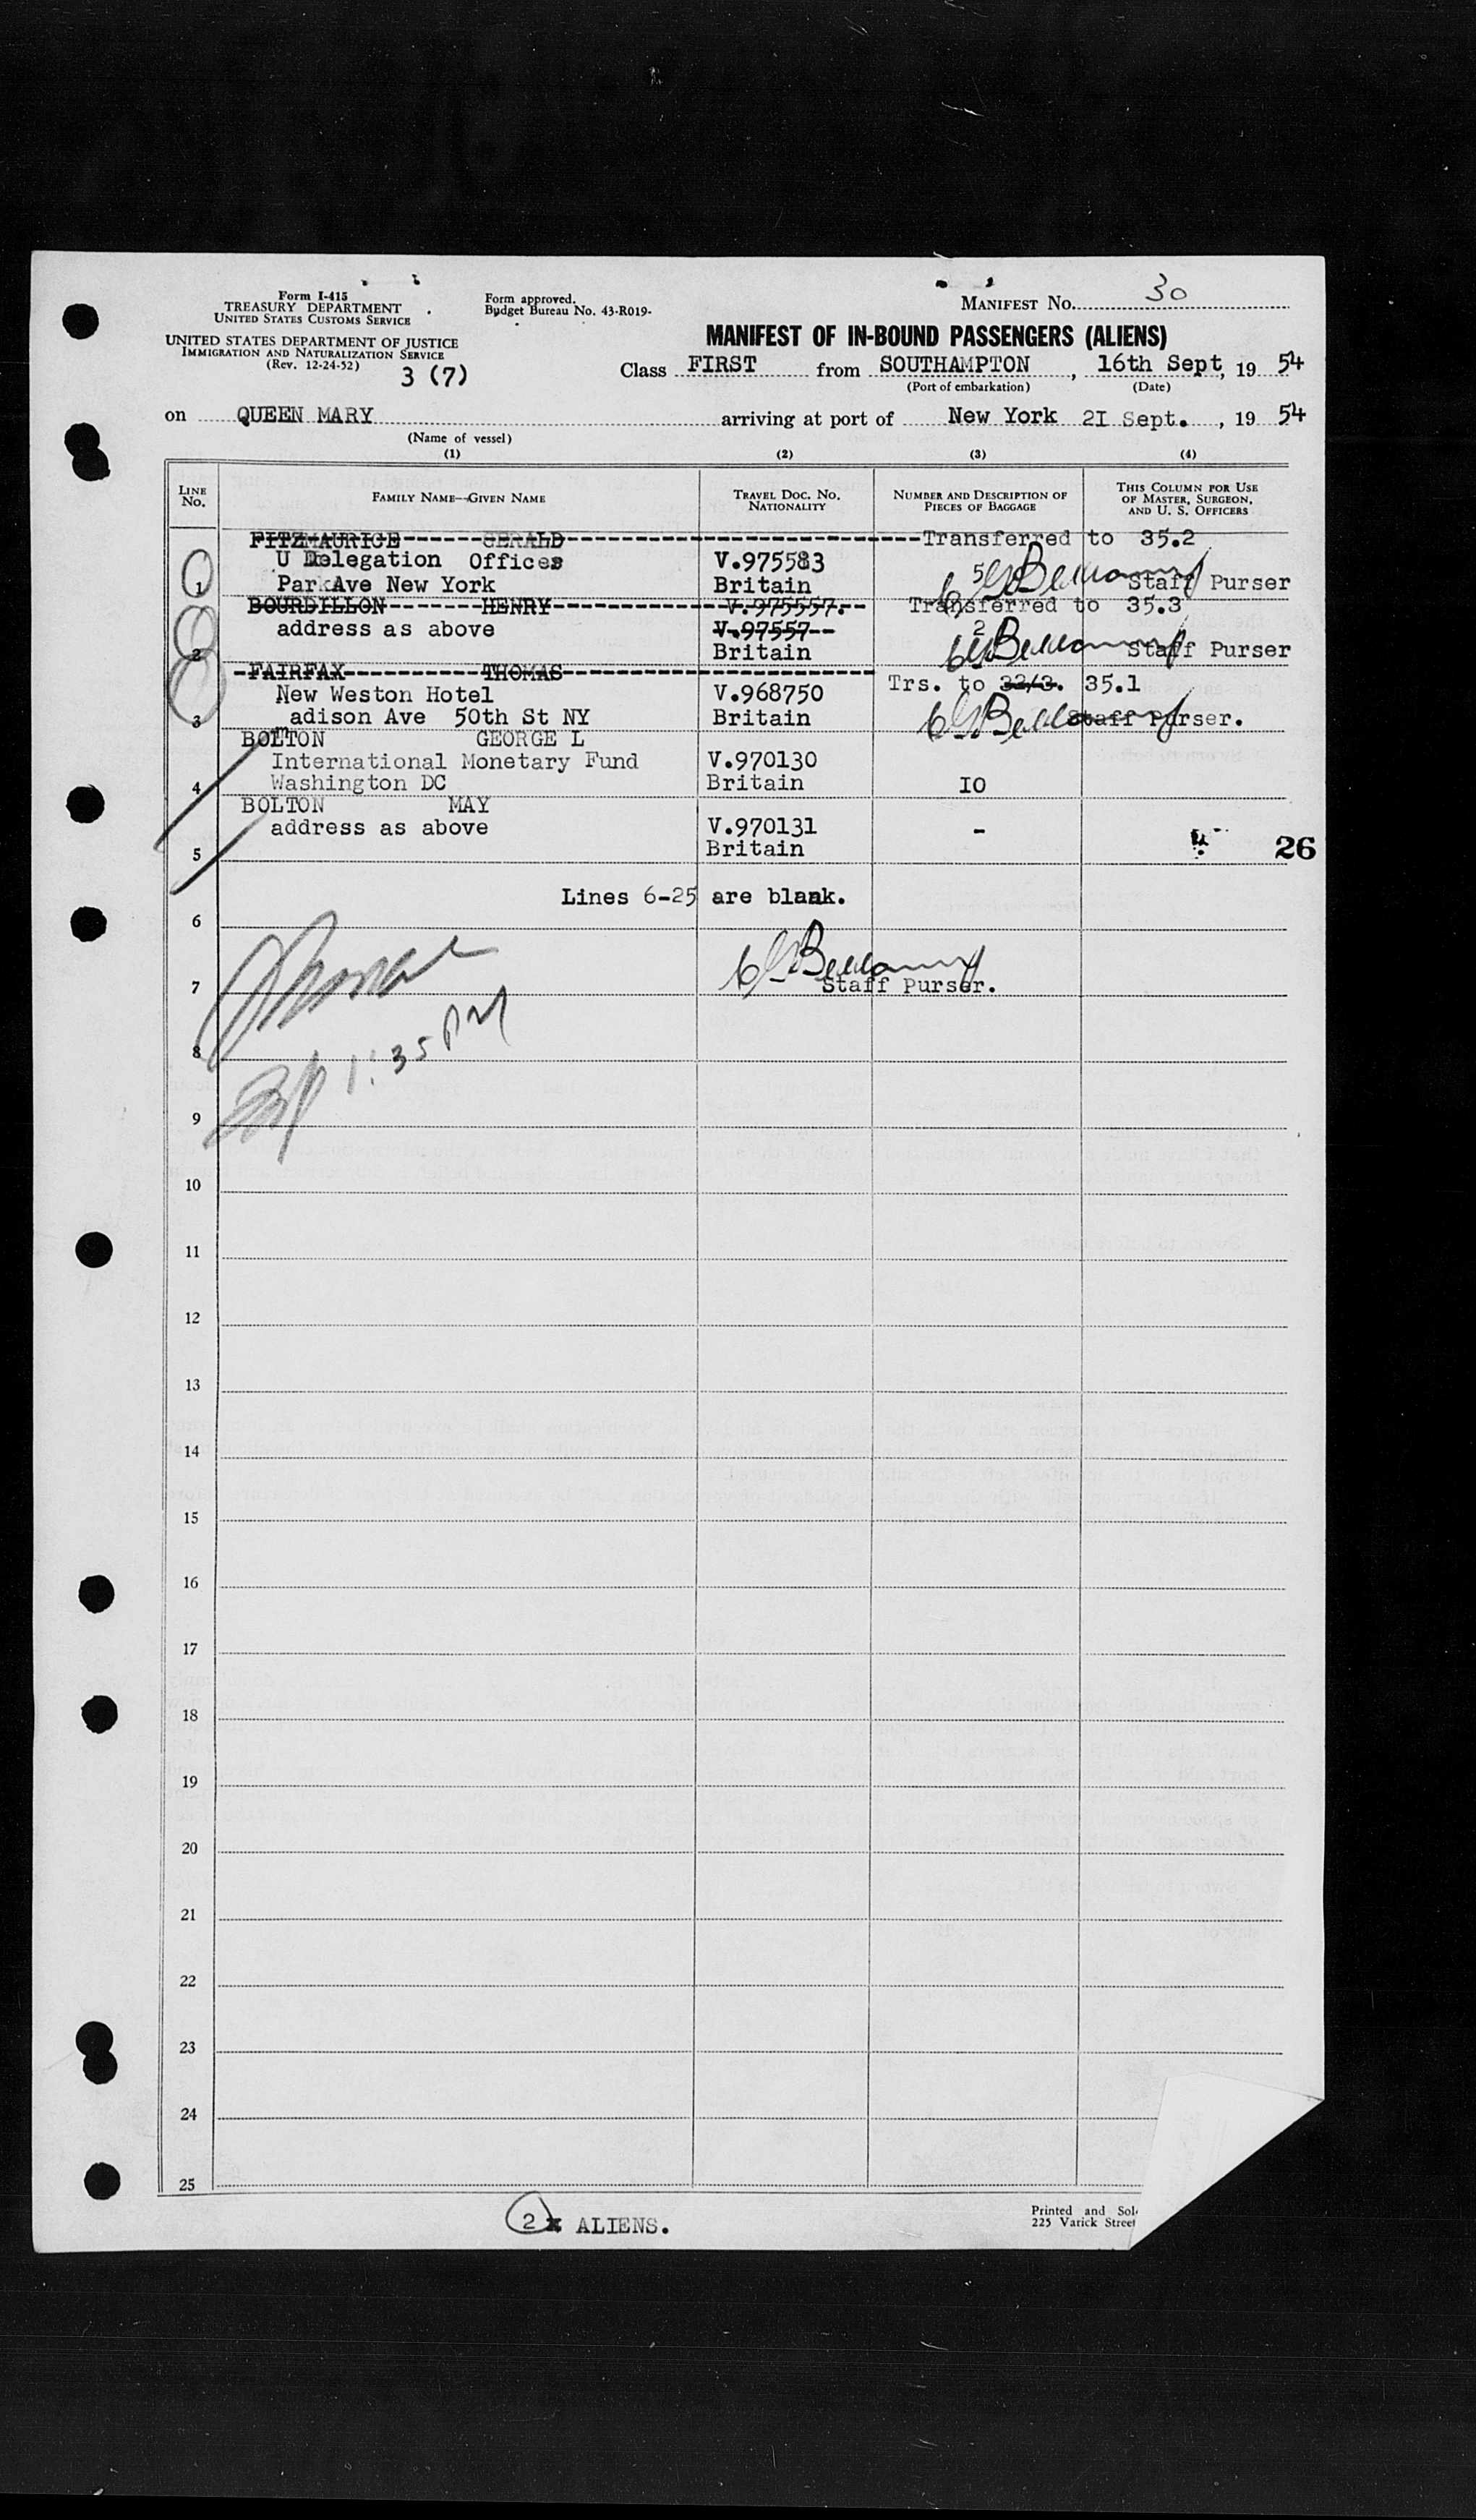 Form I-415
TREASURY DEPARTMENT
UNITED STATES CUSTOMS SERVICE
UNITED STATES DEPARTMENT OF JUSTICE
IMMIGRATION AND NATURALIZATION SERVICE
(Rev. 12-24-52)
3 (7)
Form approved.
Budget Bureau No. 43-R019-
MANIFEST No. 30
MANIFEST OF IN-BOUND PASSENGERS (ALIENS)
Class FIRST from SOUTHAMPTON, 16th Sept, 19 54
(Port of embarkation) (Date)
on QUEEN MARY arriving at port of New York 2I Sept., 19 54
(Name of vessel)
(1) (2) (3) (4)
LINE No. FAMILY NAME--GIVEN NAME TRAVEL DOC. No. NATIONALITY NUMBER AND DESCRIPTION OF PIECES OF BAGGAGE THIS COLUMN FOR USE OF MASTER, SURGEON, AND U. S. OFFICERS
FITZMAURICE------GERALD-----Transferred to 35.2
U Delegation Offices V.975583
1 Park Ave New York Britain 5 Staff Purser
BOURDILLON-------HENRY----------V.975557.-- Transferred to 35.3
address as above V.97557-- 2
2 Britain Staff Purser
-FAIRFAX----------THOMAS-----
New Weston Hotel V.968750 Trs. to 32/3. 35.1
3 adison Ave 50th St NY Britain Staff Purser.
m
BOLTON GEORGE L
International Monetary Fund V.970130
4 Washington DC Britain IO
BOLTON MAY
address as above V.970131 -
5 Britain 26
Lines 6-25 are blank.
6
7 Staff Purser.
8 1:35 PM
9
10
11
12
13
14
15
16
17
18
19
20
21
22
23
24
25
2 ALIENS.
Printed and Sol
225 Varick Street